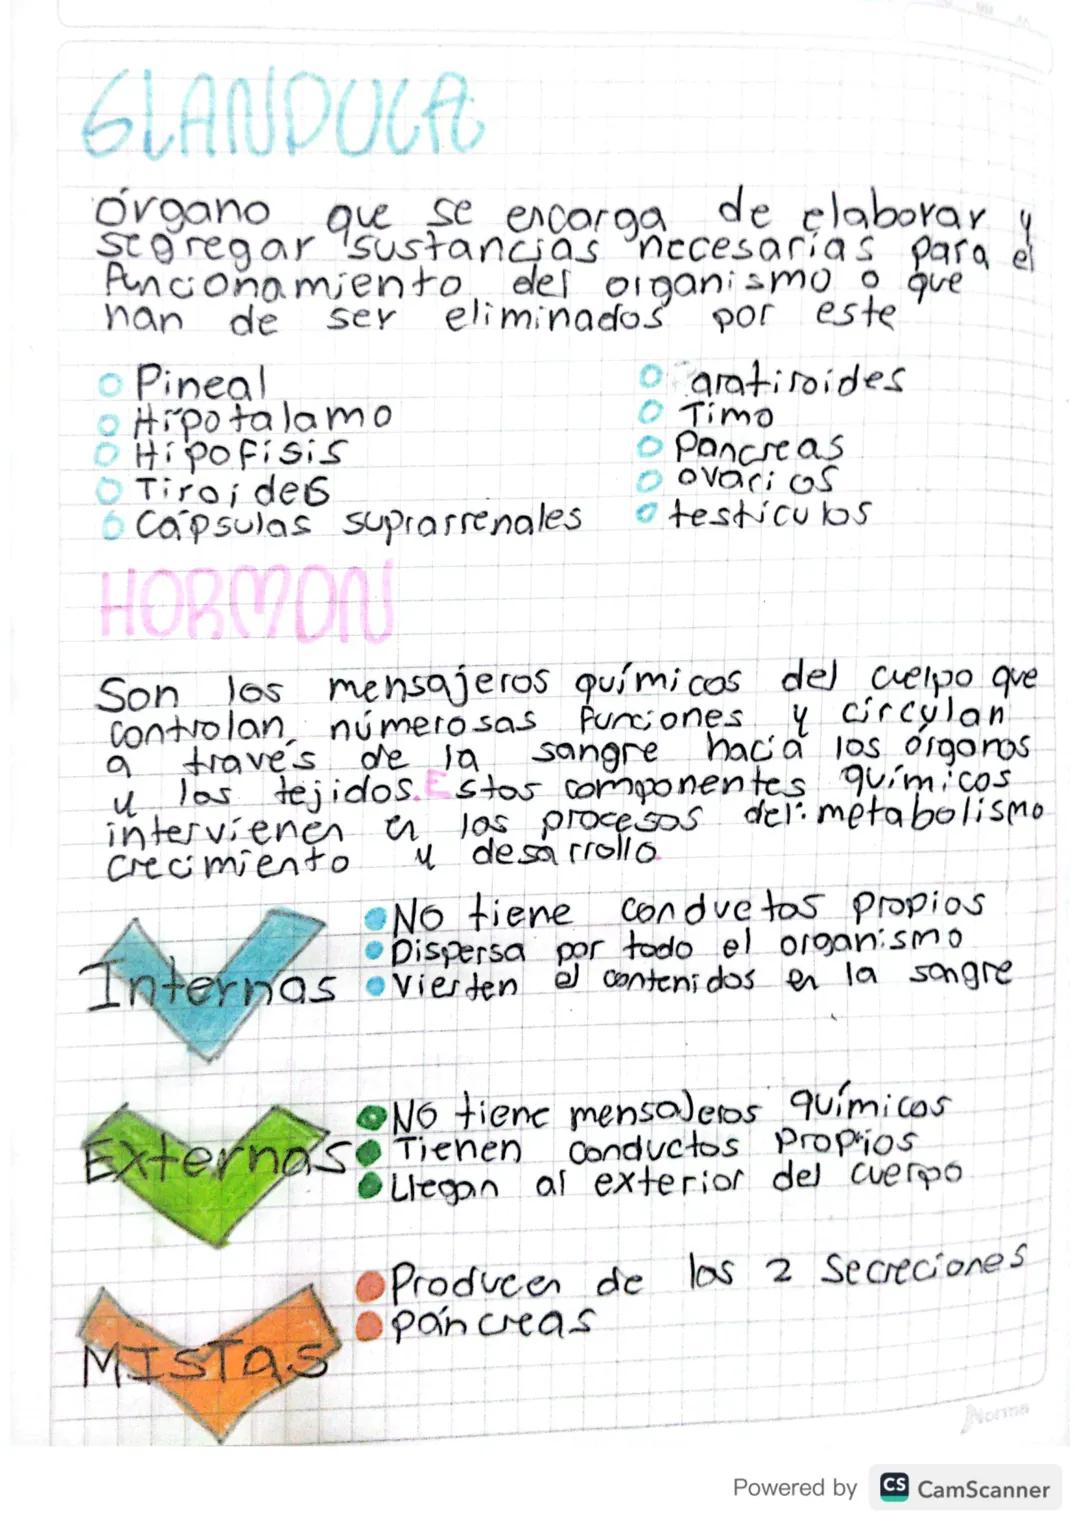 GLANDULA
órgano que se encarga de elaborar y
segregar sustancias necesarias para el
funcionamiento del organismo o que
han de ser eliminados por este
Pineal
Hipotalamo
Hipofisis
Tiroides
Cápsulas suprarrenales
aratiroides
Timo
Pancreas
ovarios
testiculos
HORMON
Son los mensajeros químicos del cuerpo que
controlan, númerosas funciones y circulan
a través de la sangre hacia los órganos
y los tejidos. Estos componentes químicos
intervienen en los procesos del: metabolismo
crecimiento y desarrollo.
Internas
No tiene conductos propios
Dispersa por todo el organismo
Vierten el contenidos en la sangre
Externas
No tiene mensajeros químicos
Tienen conductos Propios
Llegan al exterior del cuerpo
MISTas
Producen de las 2 secreciones
páncreas
Norma
Powered by CS CamScanner